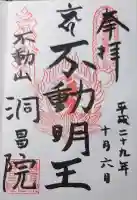 奉拝
平成二十九年
十月六日
不動明王
不動山
洞昌院